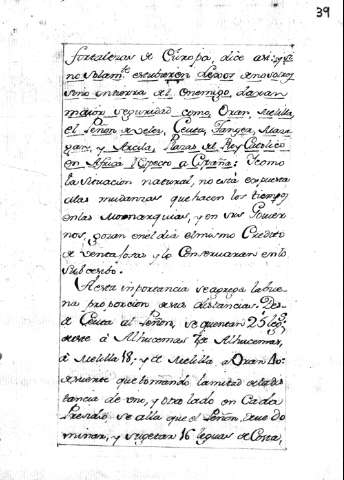 39
fortalezas de Europa, dice asi: que
no solamte. estubieren lexos de nosotros
sino en tierra del enemigo, daran
maior seguridad como Oran, Melilla,
el Peñon de Velez, Ceuta, Tanger, Maza-
gan, y Arcila Plazas del Rey Catolico
en Africa respecto a España: Y como
la situacion natural, no está expuesta
a las mudanzas que hacen los tiempos
en las Monarquias, y en sus Gover-
nos, gozan en el dia el mismo Credito
de ventajosas y lo conservaran en lo
subcesibo.
A esta importancia se agrega la bue-
na proporcion de sus distancias. Des-
de Ceuta al Peñon, se quentan 25 leg.
de este à Alhucemas, de Alhucemas,
à Melilla 18; y de Melilla a Oran 40:
de suerte que tomando la mitad de la dis-
tancia de uno, y otro lado en Cada
Presidio se alla que el Peñon, puede do
minar, y sugetar 16 leguas de Costa,